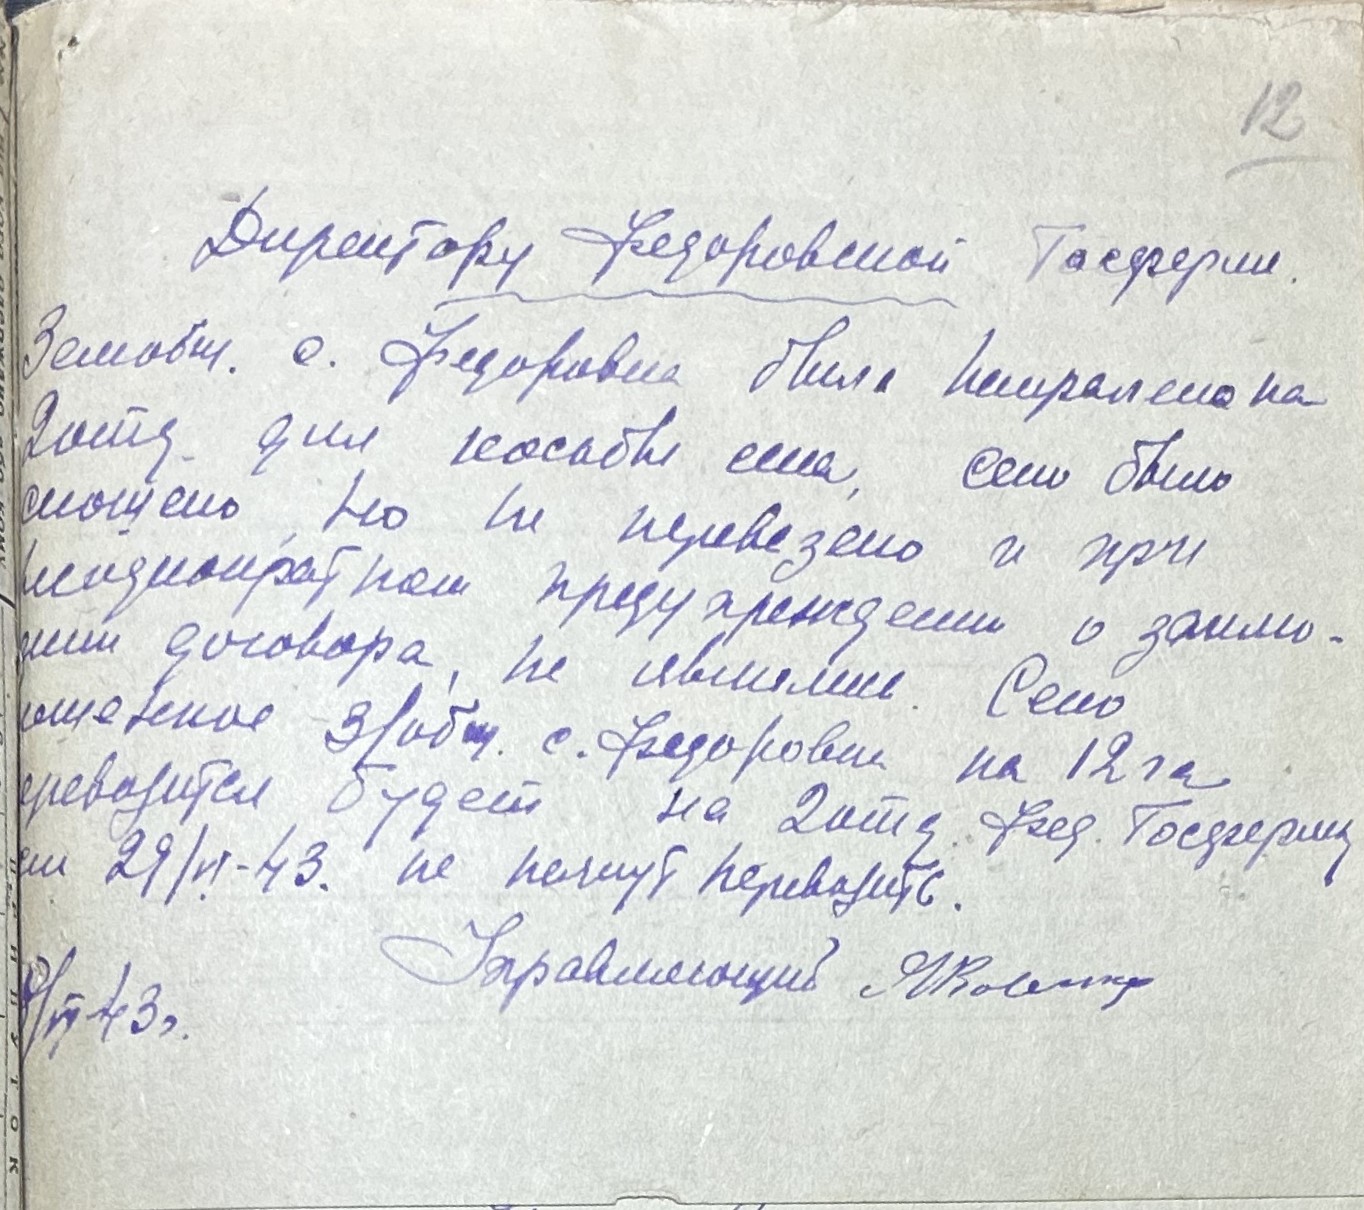 12
Директору Федоровской Госферми.
Земобщ. с. Федоровка была направлена на
2 отд. для кособы сена, сено было
скошено, но не перевезено и при
неоднократном предупреждении о заклю-
нии договора, не явились. Сено
кошенное З/общ. с. Федоровка на 12 га
ереводится будет на 2 отд. Фед. Госферми
сли 29/VI-43. не начнут переводить.
Управляющий
/VI-43г.